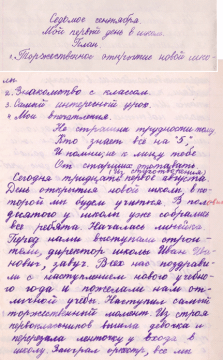 Седьмое сентября.
Мой первый день в школе.
План.
1. Торжественное открытие новой шко-
лы.
2. Знакомство с классом.
3. Самый интересный урок.
4. Мои впечатления.
Не страшны трудности тому,
Кто знает все на "5",
И помощь к лицу тебе
От старших отставать
(Из стихотворения)
Сегодня тридцать первое августа.
День открытия новой школы, в ко-
торой мы будем учиться. В поло
десятого у школы уже собрались
все ребята. Началась линейка.
Перед нами выступали строи-
тели, директор школы Иван
нович, завуч. Все нас поздравля-
ли с наступлением нового учебно-
го года и пожелали нам от-
личной учебы. Наступил самый
торжественный момент. Из строя
первоклассников вышла девочка и
перерезала ленточку у входа в
школу. Заиграл оркестр, все мы